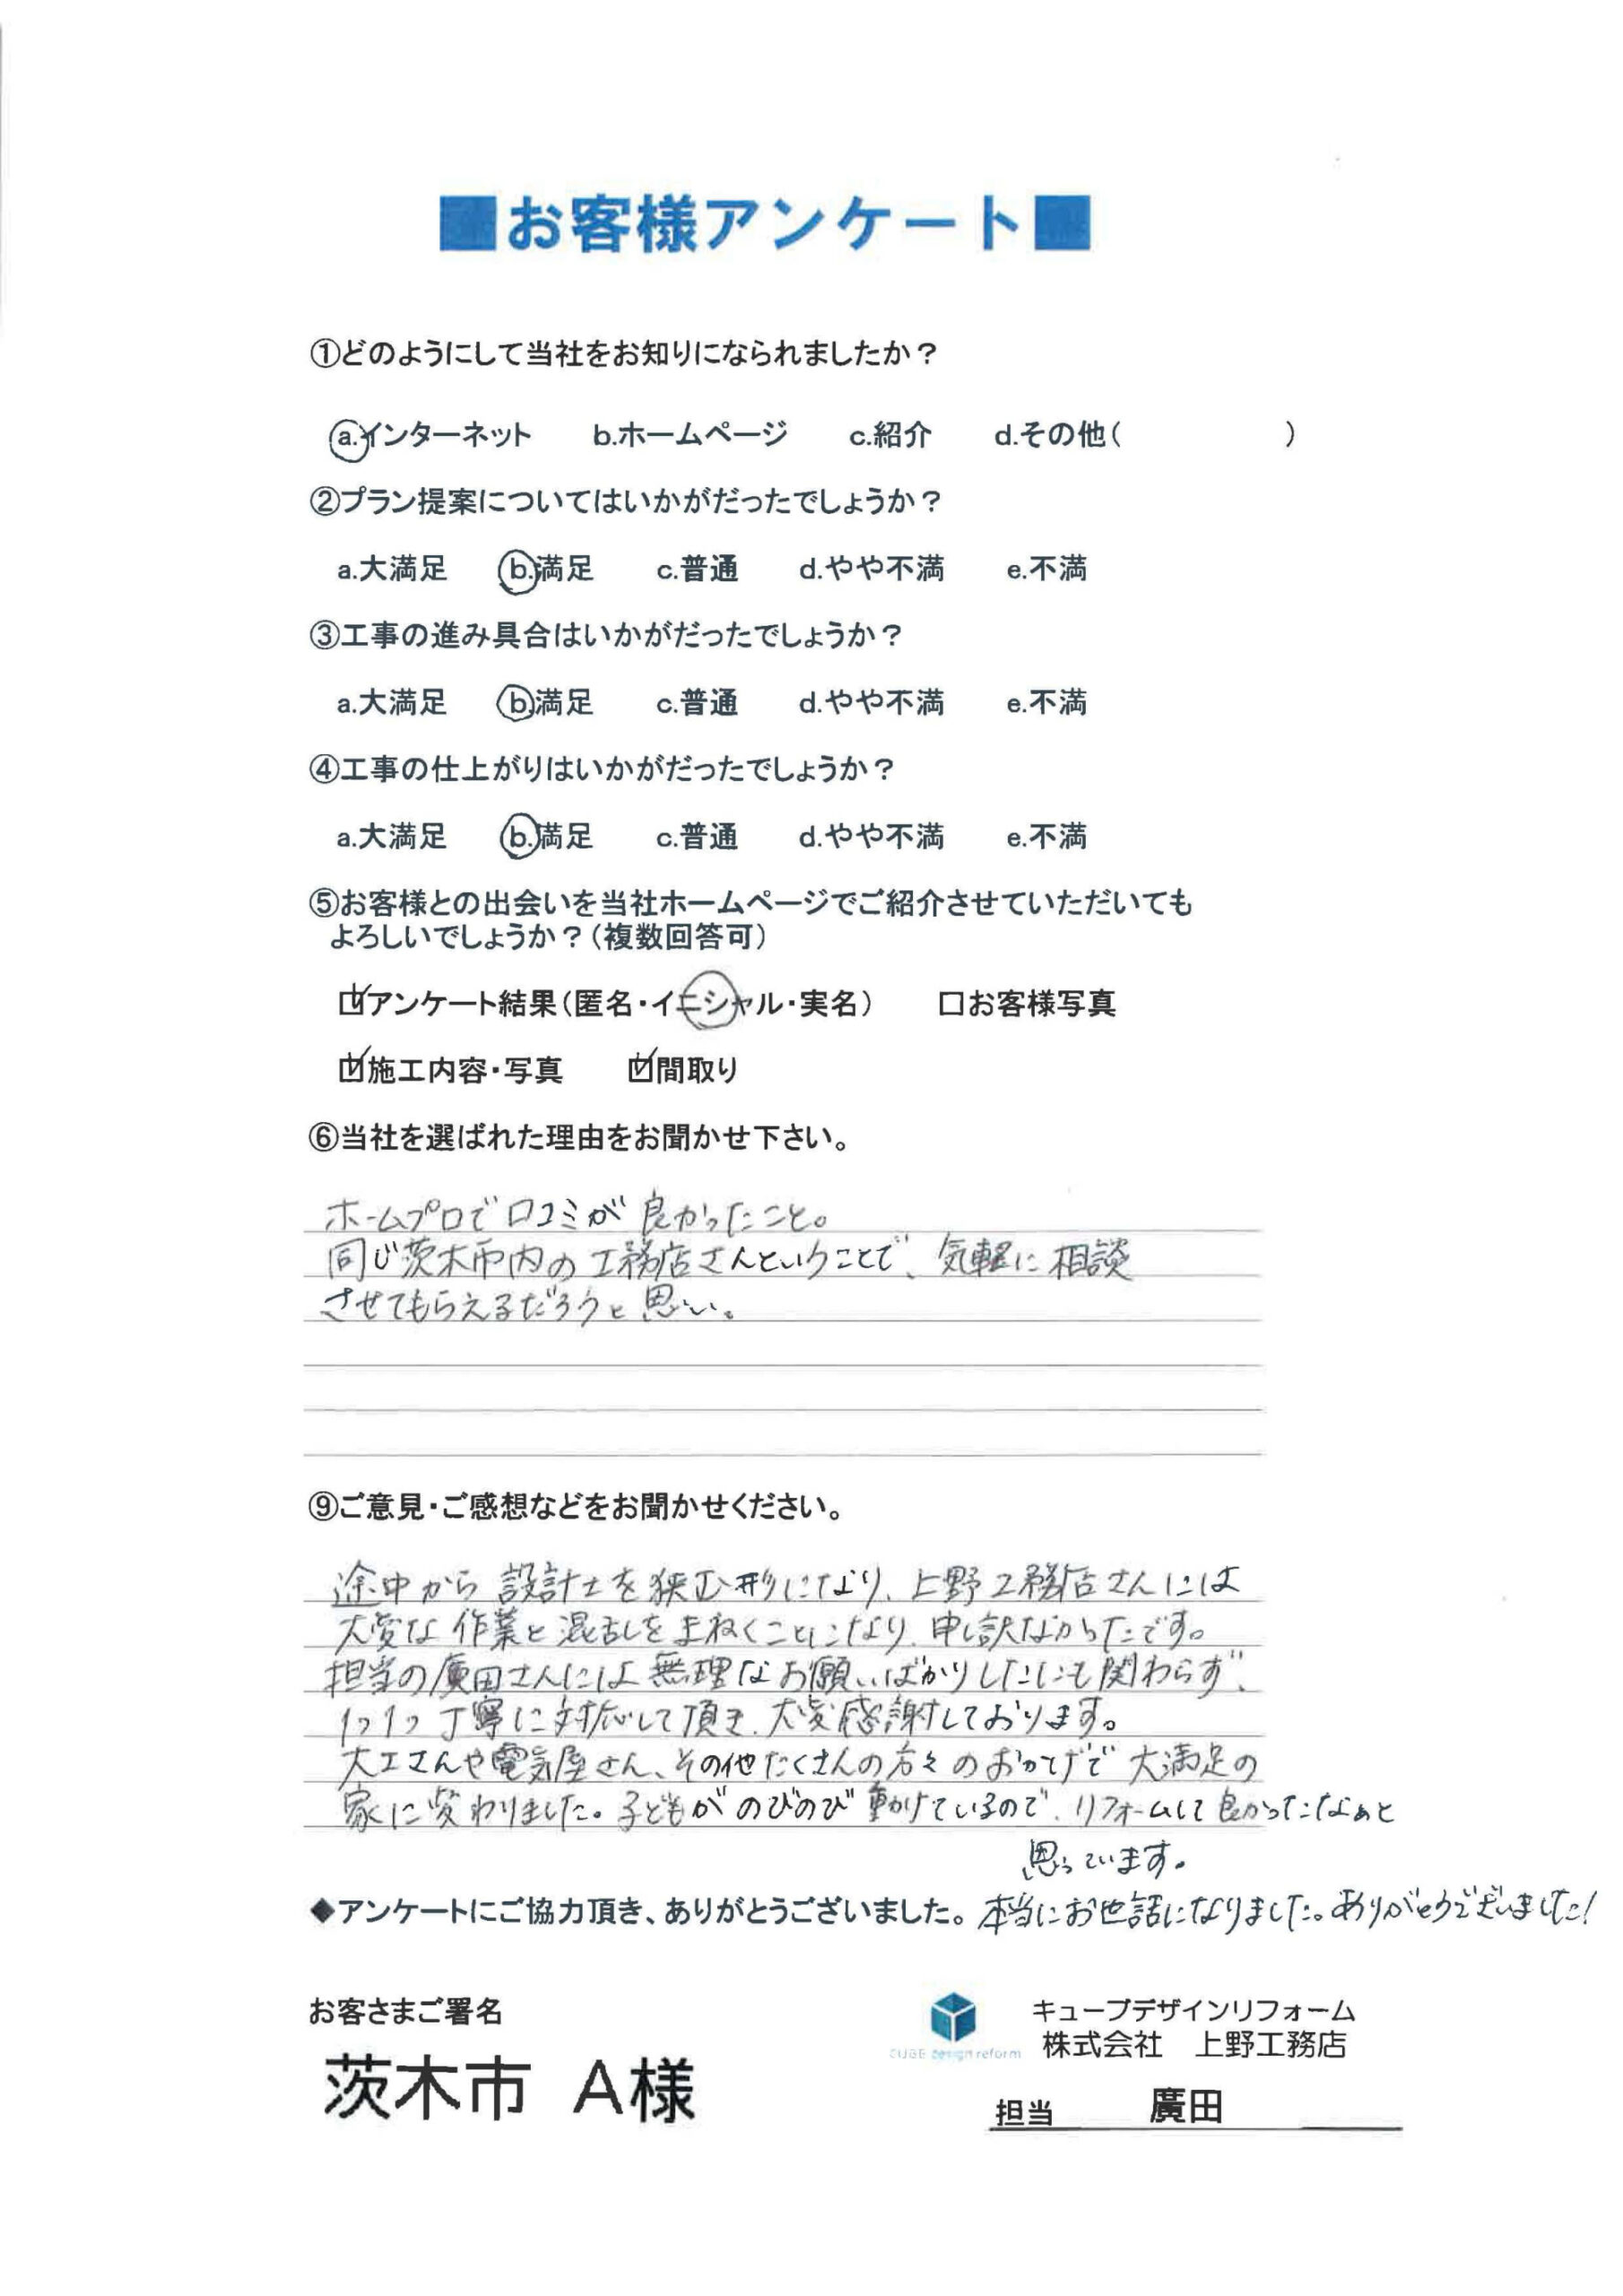 ■お客様アンケート■
①どのようにして当社をお知りになられましたか？
a.インターネット b.ホームページ c.紹介 d.その他( )
②プラン提案についてはいかがだったでしょうか？
a.大満足 b.満足 c.普通 d.やや不満 e.不満
③工事の進み具合はいかがだったでしょうか？
a.大満足 b.満足 c.普通 d.やや不満 e.不満
④工事の仕上がりはいかがだったでしょうか？
a.大満足 b.満足 c.普通 d.やや不満 e.不満
⑤お客様との出会いを当社ホームページでご紹介させていただいても
よろしいでしょうか？（複数回答可）
☑アンケート結果（匿名・イニシャル・実名） □お客様写真
☑施工内容・写真 ☑間取り
⑥当社を選ばれた理由をお聞かせ下さい。
ホームプロで口コミが良かったこと。
同じ茨木市内の工務店さんということで、気軽に相談
させてもらえるだろうと思い。
⑨ご意見・ご感想などをお聞かせください。
途中から設計士を狭む形になり、上野工務店さんには
大変な作業と混乱をまねくことになり、申し訳なかったです。
担当の廣田さんには無理なお願いばかりしたにも関わらず、
1つ1つ丁寧に対応して頂き、大変感謝しております。
大工さんや電気屋さん、その他たくさんの方々のおかげで大満足の
家に変わりました。子どもがのびのび動けているので、リフォームして良かったなぁと
思っています。
◆アンケートにご協力頂き、ありがとうございました。本当にお世話になりました。ありがとうございました！
お客さまご署名
茨木市 A様
CUBE design reform
キューブデザインリフォーム
株式会社 上野工務店
担当 廣田